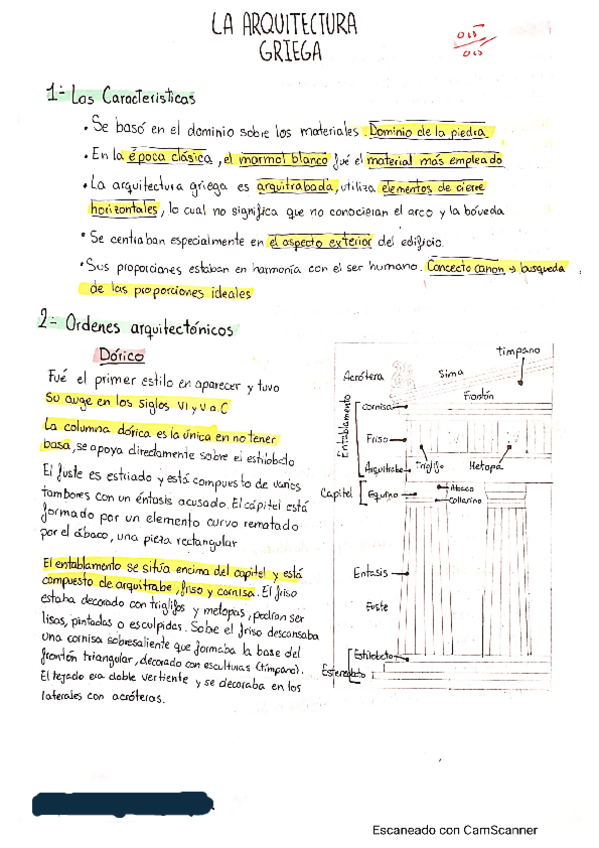 LA ARQUITECTURA
GRIEGA
0'5
0'5
1- Las Características
• Se basó en el dominio sobre los materiales. Dominio de la piedra
• En la época clásica, el marmol blanco fué el material más empleado
• La arquitectura griega es arquitrabada, utiliza elementos de cierre
horizontales, lo cual no significa que no conocieran el arco y la bóveda
• Se centraban especialmente en el aspecto exterior del edificio.
• Sus proporciones estaban en harmonía con el ser humano. Concecto canon → busqueda
de las proporciones ideales
2- Ordenes arquitectónicos
Dórico
Fué el primer estilo en aparecer y tuvo
su auge en los siglos VI y V a C
La columna dórica es la única en no tener
basa, se apoya directamente sobre el estilobato
El fuste es estriado y está compuesto de varios
tambores con un éntasis acusado. El cápitel está
formado por un elemento curvo rematado
por el ábaco, una pieza rectangular
El entablamento se sitúa encima del capitel y está
compuesto de arquitrabe, friso y cornisa. El friso
estaba decorado con triglifos y metopas, podían ser
lisas, pintadas o esculpidas. Sobe el friso descansaba
una cornisa sobresaliente que formaba la base del
frontón triangular, decorado con esculturas (tímpano).
El tejado era doble vertiente y se decoraba en los
laterales con acróteras.
tímpano
Acrótera
Sima
Frontón
Entablamento
Cornisa
Friso
Arquitrabe
Triglifo
Metopa
Capitel
Equino
Abaco
Collarino
Entasis
Fuste
Estilobato
Estereobato
Escaneado con CamScanner